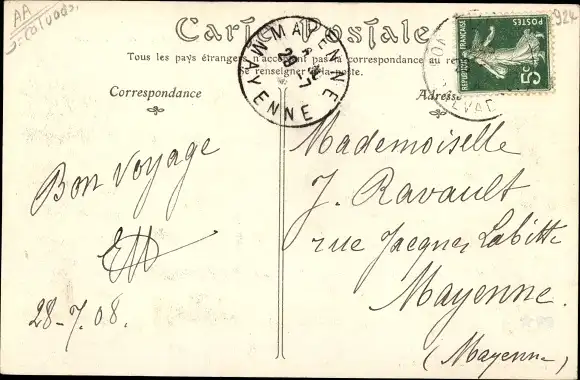 AA
Calvados
924
Carte Postale
Tous les pays étrangers n'acceptent pas la correspondance au
Se renseigner à la poste.
Correspondance
Adresse
MAYENNE
MAYENNE
29 -7
REPUBLIQUE FRANÇAISE
POSTES
5c
Bon Voyage
EM
28-7.08.
Mademoiselle
J. Ravault
rue Jacques Labitte
Mayenne.
(Mayenne)